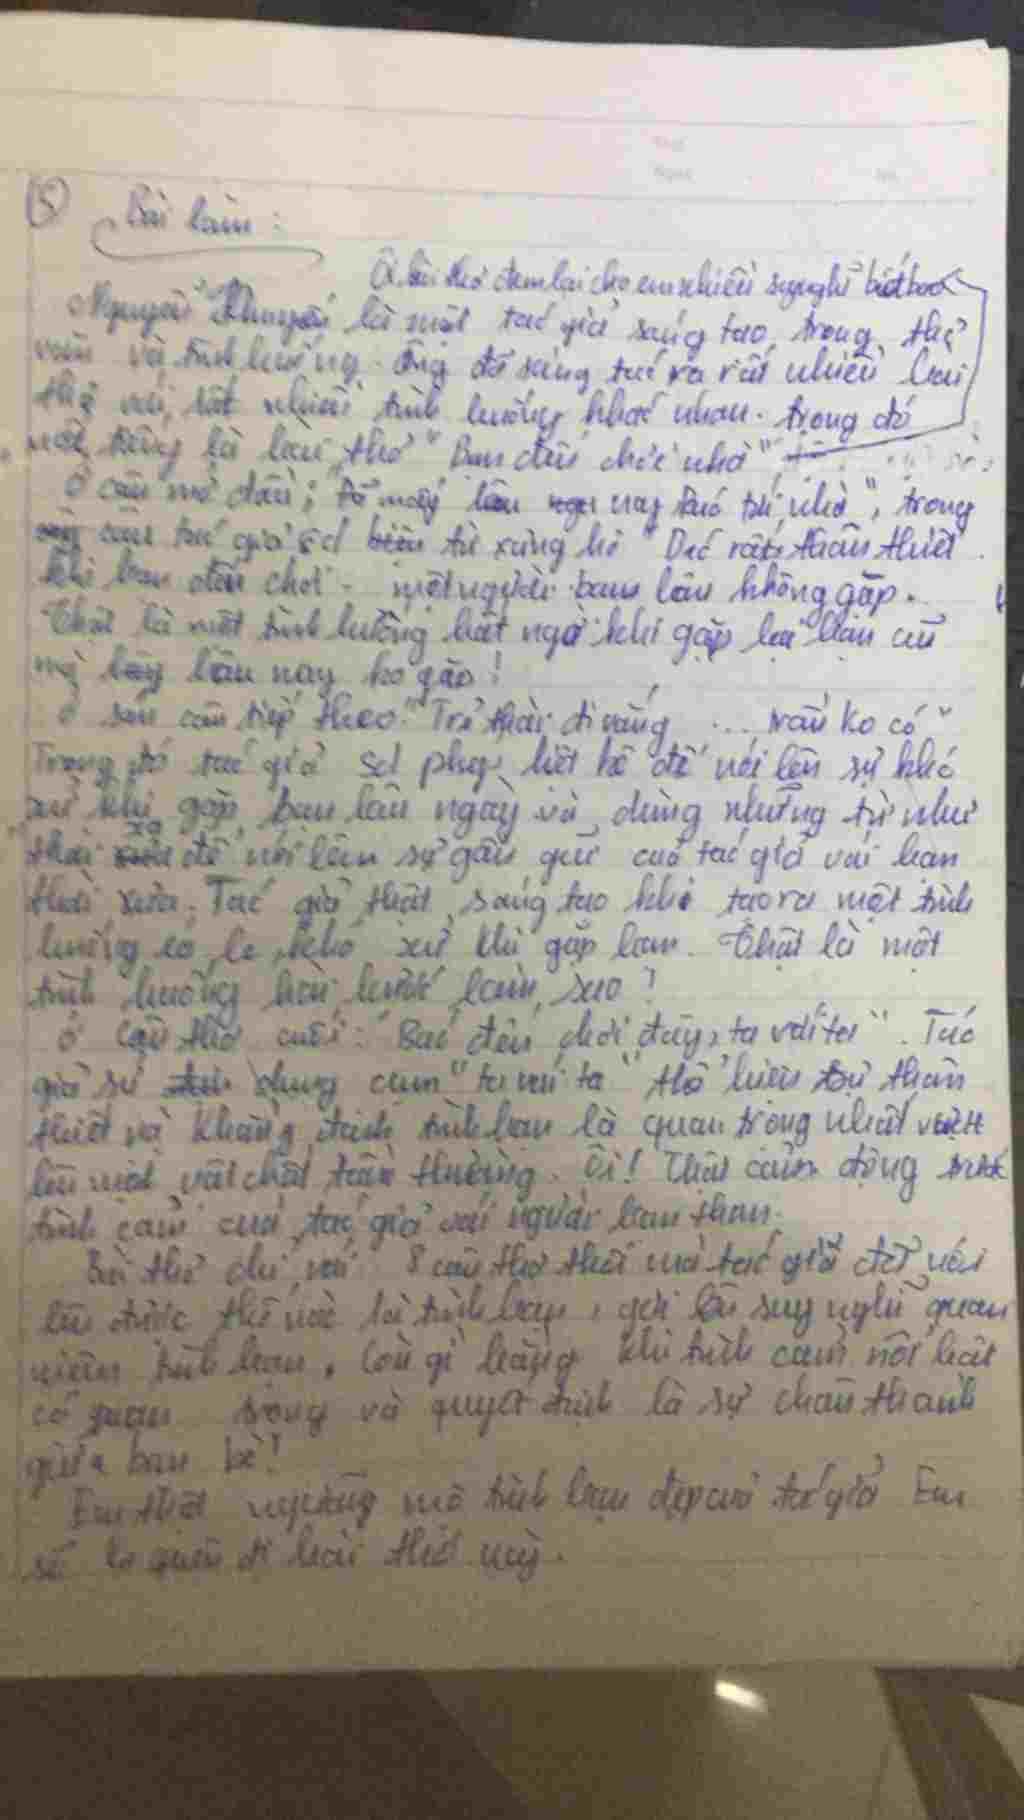 5 Bài làm:
Ôi bài thơ đem lại cho em nhiều suy nghĩ biết bao
Nguyễn Khuyến là một tác giả sáng tạo, trong thơ
văn và tình huống. Ông đã sáng tác ra rất nhiều bài
thơ với rất nhiều tình huống khác nhau. trong đó
nổi tiếng là bài thơ "Bạn đến chơi nhà"
Ở câu mở đầu: Đã mấy lâu nay bác tới nhà", trong
câu tác giả sd từ xưng hô "Bác rất thân thiết
khi bạn đến chơi - một người bạn lâu không gặp.
Thật là một tình huống bất ngờ khi gặp lại bạn cũ
mà lâu nay ko gặp!
Ở sáu câu tiếp theo "Trẻ thời đi vắng ... trầu ko có"
Trong đó tác giả sd phép liệt kê để nói lên sự khó
xử khi gặp bạn lâu ngày và dùng những từ như
thời xa để nói lên sự gần gũi của tác giả với bạn
thời xưa. Tác giả thật sáng tạo khi tạo ra một tình
huống éo le, khó xử khi gặp bạn. Thật là một
tình huống hài hước làm sao!
Ở câu thơ cuối: "Bác đến chơi đây, ta với ta". Tác
giả sử dụng cụm "ta với ta" thể hiện sự thân
thiết và khẳng định tình bạn là quan trọng nhất vượt
lên mọi vật chất tầm thường. Ôi! Thật cảm động trước
tình cảm của tác giả với người bạn thân.
Bài thơ chỉ với 8 câu thơ thôi mà tác giả đã nói
lên được thế nào là tình bạn, gợi lên suy nghĩ quan
niệm tình bạn. Còn gì bằng khi tình cảm
có quan trọng và quyết định là sự chân thành
giữa bạn bè!
Em thật ngưỡng mộ tình bạn đẹp của tác giả Em
sẽ ko quên đi bài thơ này.